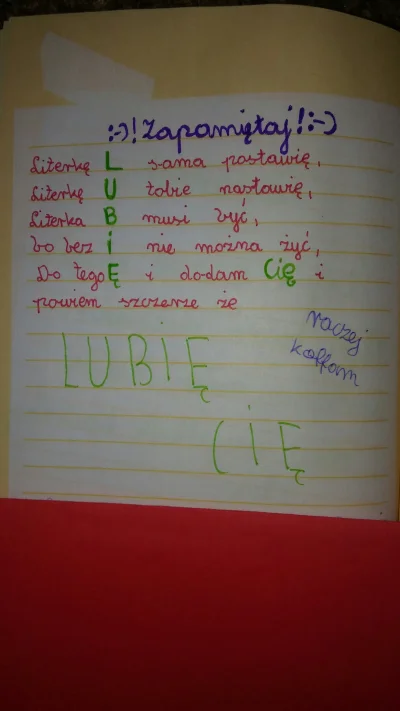 :-)! Zapamiętaj! :-)
Literkę L sama postawię,
Literkę U tobie nastawię,
Literka B musi być,
bo bez i nie można żyć,
Do tego Ę i dodam Cię i
powiem szczerze że
LUBIĘ
raczej
koffam
CIĘ